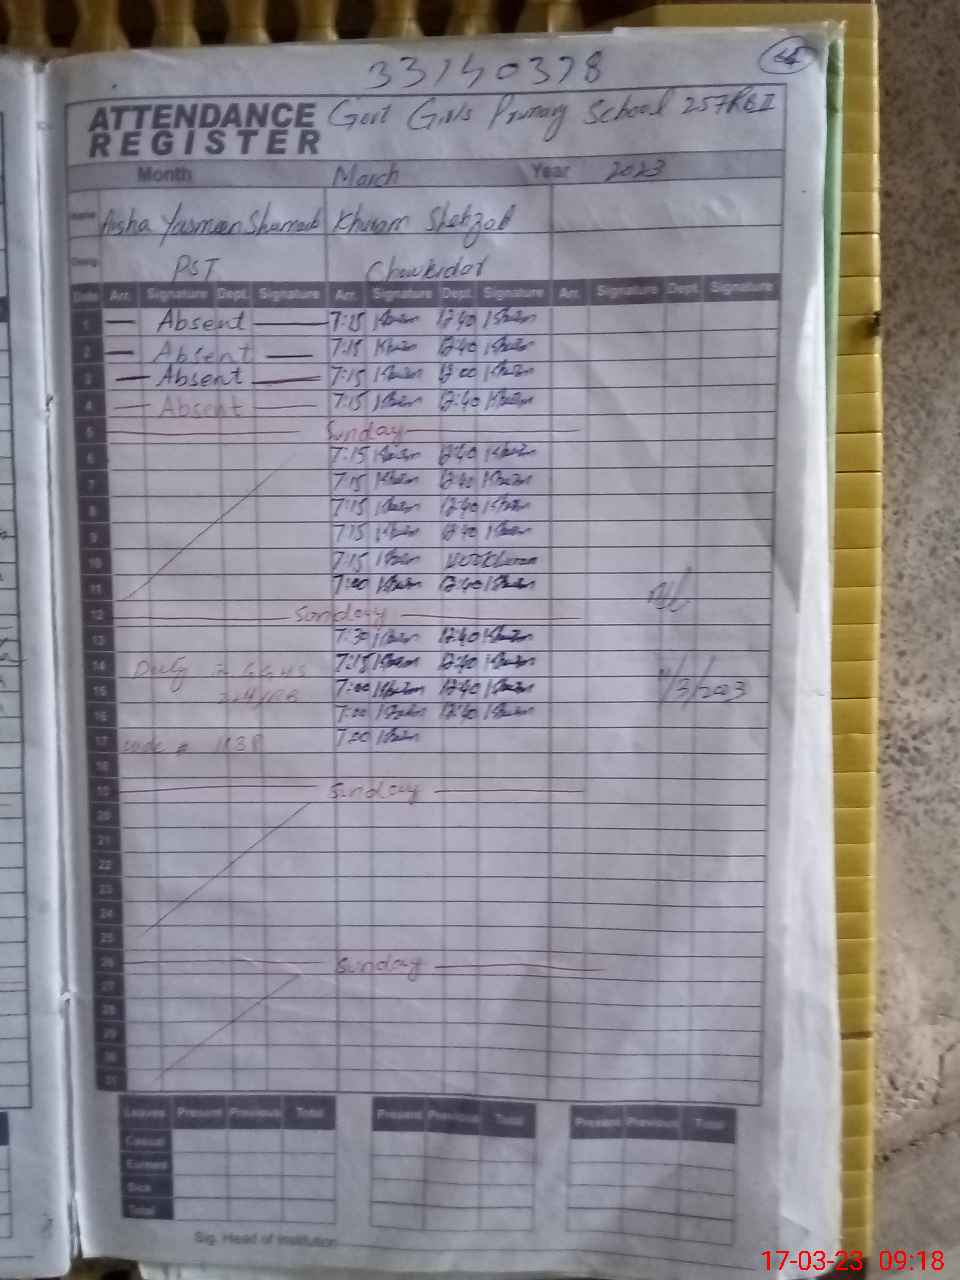 33140378
ATTENDANCE REGISTER Govt Girls Primary School 257RBII
Month March Year 2023
Name Aisha Yasmeen Khuram Shehzad
Desig. PST Chowkidar
Date Arr. Signature Dept. Signature Arr. Signature Dept. Signature Arr. Signature Dept. Signature
1 — Absent — 7:15 Khuram 12:40 Khuram
2 — Absent — 7:15 Khuram 12:40 Khuram
3 — Absent — 7:15 Khuram 12:00 Khuram
4 — Absent — 7:15 Khuram 12:40 Khuram
5 Sunday
6 7:15 Khuram 12:40 Khuram
7 7:15 Khuram 12:40 Khuram
8 7:15 Khuram 12:40 Khuram
9 7:15 Khuram 12:40 Khuram
10 7:15 Khuram Khuram
11 7:00 Khuram 12:40 Khuram
12 Sunday
13 7:30 Khuram 12:40 Khuram
14 Duty GGHS 7:15 Khuram 12:40 Khuram
15 7:00 Khuram 12:40 Khuram /3/2023
16 7:00 Khuram 12:40 Khuram
17 code # 7:00 Khuram
18
19 Sunday
20
21
22
23
24
25
26 Sunday
27
28
29
30
31
Leaves Present Previous Total Present Previous Total Present Previous Total
Casual
Earned
Sick
Total
Sig. Head of Institution
17-03-23 09:18